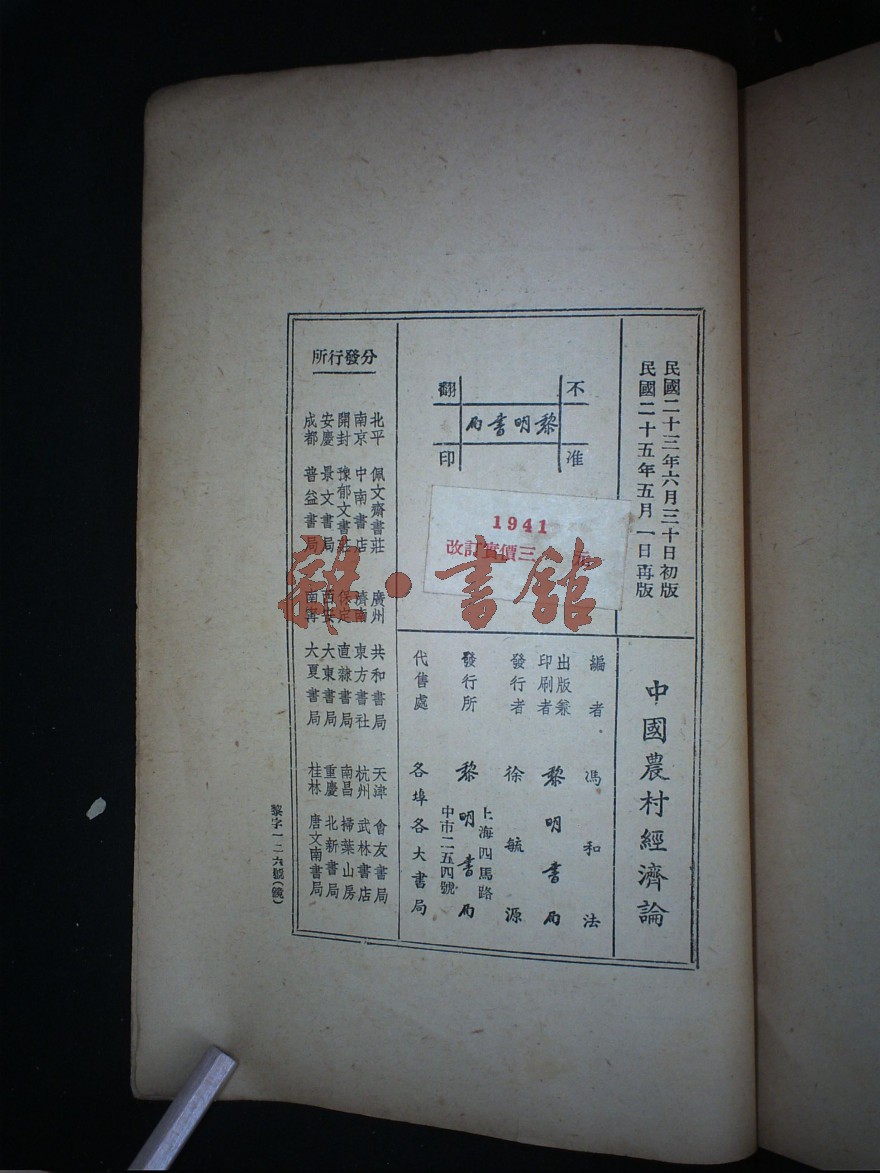 民國二十三年六月三十日初版
民國二十五年五月一日再版
中國農村經濟論
不准翻印
黎明書局
1941
改訂實價三 元
編者 馮和法
出版兼印刷者 黎明書局
發行者 徐毓源
發行所 黎明書局
上海四馬路
中市二五四號
代售處 各埠各大書局
分發行所
北平 佩文齋書莊
南京 中南書店
開封 豫郁文書莊
安慶 景文書局
成都 普益書局
廣州 共和書局
濟南 東方書社
保定 直隸書局
西安 大東書局
南寧 大夏書局
天津 會友書局
杭州 武林書店
南昌 掃葉山房
重慶 北新書局
桂林 唐文南書局
黎字一二六號(鏡)
雜·書館